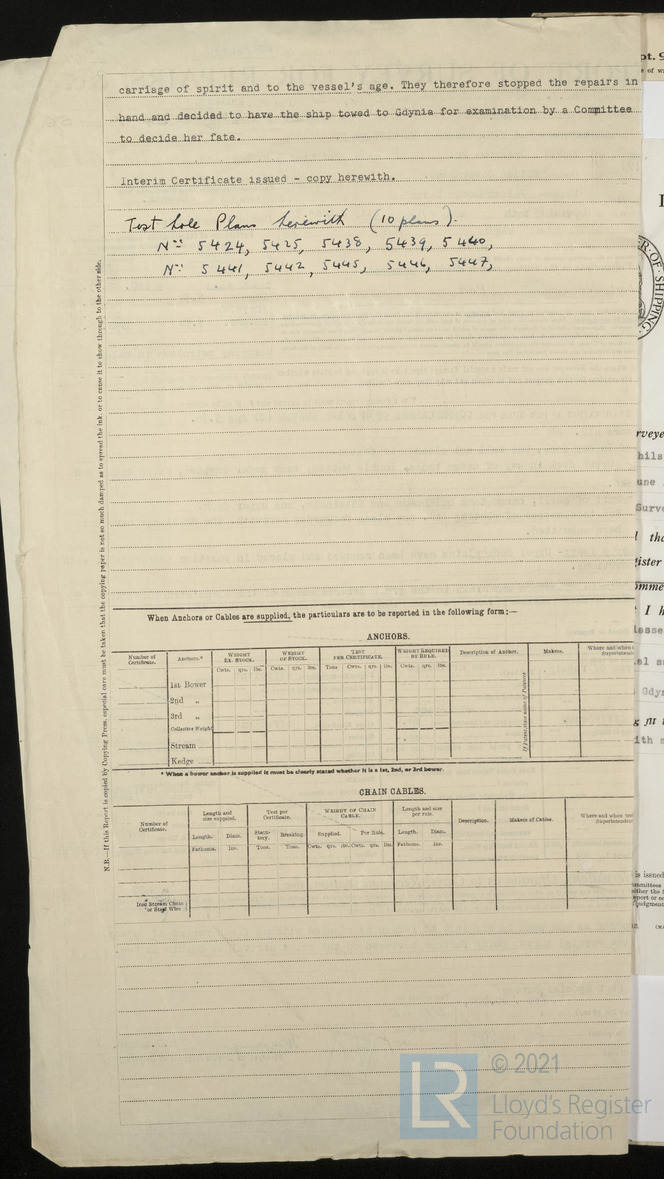 carriage of spirit and to the vessel's age. They therefore stopped the repairs in
hand and decided to have the ship towed to Gdynia for examination by a Committee
to decide her fate.
Interim Certificate issued - copy herewith.
Test hole Plans herewith (10 plans).
Nos 5424, 5425, 5438, 5439, 5440,
Nos 5441, 5442, 5445, 5446, 5447,
N.B.—If this Report is copied by Copying Press, especial care must be taken that the copying paper is not so much damped as to spread the ink, or to cause it to show through to the other side.
When Anchors or Cables are supplied, the particulars are to be reported in the following form:—
ANCHORS.
Number of Certificate. Anchors.* WEIGHT EX. STOCK. WEIGHT OF STOCK. TEST PER CERTIFICATE. WEIGHT REQUIRED BY RULE. Description of Anchor. Makers. Where and when
Superintendent
Cwts. qrs. lbs. Cwts. qrs. lbs. Tons Cwts. qrs. lbs. Cwts. qrs. lbs.
1st Bower
2nd „
3rd „
Collective Weight
Stream
Kedge
* When a bower anchor is supplied it must be clearly stated whether it is a 1st, 2nd, or 3rd bower.
CHAIN CABLES.
Number of Certificate. Length and size supplied. Test per Certificate. WEIGHT OF CHAIN CABLE. Length and size per rule. Description. Makers of Cables. Where and when
Superintendent
Length. Diam. Statutory. Breaking. Supplied. Per Rule. Length. Diam.
Fathoms. Ins. Tons. Tons. Cwts. qrs. lbs. Cwts. qrs. lbs. Fathoms. Ins.
Iron Stream Chain
or Steel Wire
R·OF·SHIPPING
Gdyn
is issued
LR
© 2021
Lloyd's Register
Foundation